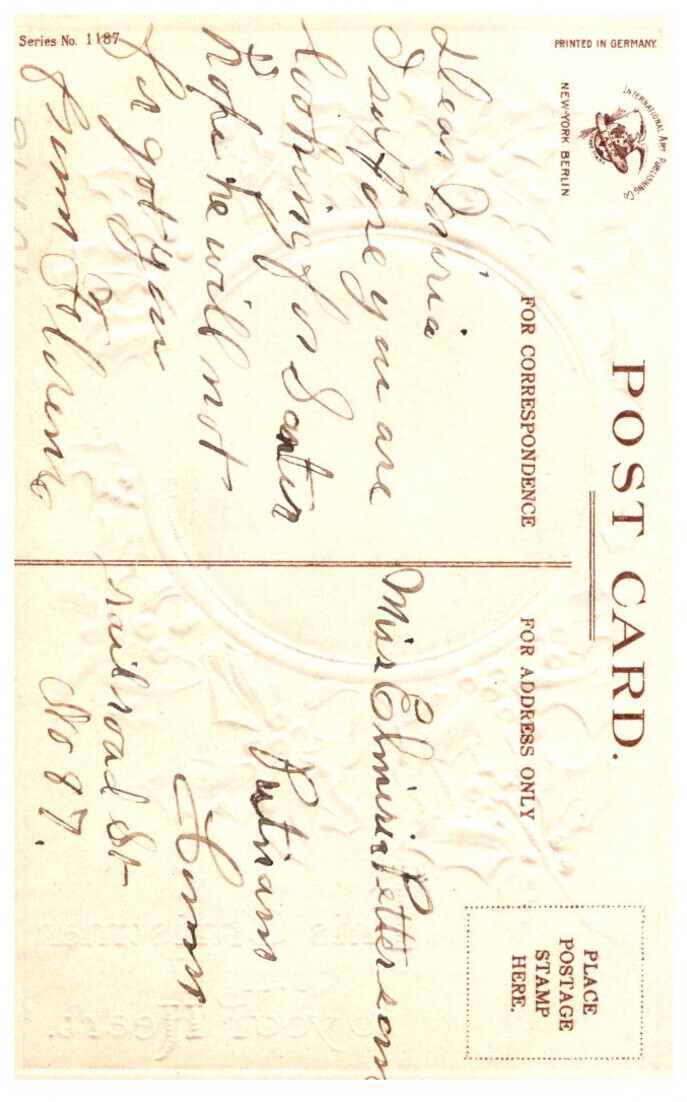 Series No. 1187
PRINTED IN GERMANY.
INTERNATIONAL ART PUBLISHING Co
NEW-YORK BERLIN
POST CARD.
FOR CORRESPONDENCE
FOR ADDRESS ONLY
PLACE
POSTAGE
STAMP
HERE.
Dear
I supose you are
looking for Santer
hope he will not
for got you
from Florence
Miss Elmiria Petterson
Putnam
Conn
railroad St
No 87.